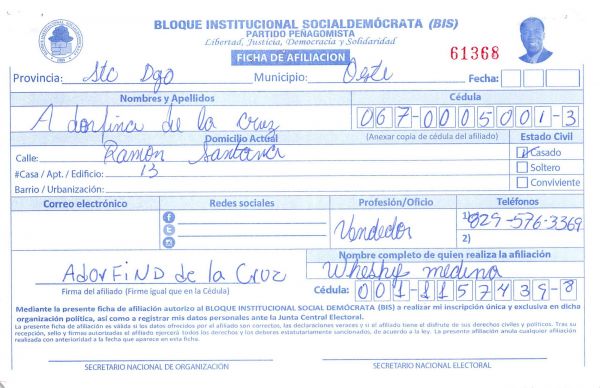 BLOQUE INSTITUCIONAL SOCIALDEMÓCRATA (BIS)
PARTIDO PEÑAGOMISTA
Libertad, Justicia, Democracia y Solidaridad
FICHA DE AFILIACION
61368
Provincia: Stc Dgo Municipio: Oeste Fecha:
Nombres y Apellidos Cédula
Adorfina de la Cruz 067-0005001-3
Domicilio Actual (Anexar copia de cédula del afiliado) Estado Civil
Calle: Ramon Santana Casado
#Casa / Apt. / Edificio: 13 Soltero
Barrio / Urbanización: Conviviente
Correo electrónico Redes sociales Profesión/Oficio Teléfonos
Vendedor 1) 829-576-3369
2)
Nombre completo de quien realiza la afiliación
Adorfina de la Cruz Wheshy medina
Firma del afiliado (Firme igual que en la Cédula) Cédula: 001-1157439-8
Mediante la presente ficha de afiliación autorizo al BLOQUE INSTITUCIONAL SOCIAL DEMÓCRATA (BIS) a realizar mi inscripción única y exclusiva en dicha
organización política, así como a registrar mis datos personales ante la Junta Central Electoral.
La presente ficha de afiliación es válida si los datos ofrecidos por el afiliado son correctos, las declaraciones veraces y si el afiliado tiene el disfrute de sus derechos civiles y políticos. Tras su
recepción, sello y firmas autorizadas el afiliado ejercerá todos los derechos y los deberes estatutariamente sancionados, de acuerdo a la ley. La presente afiliación anula cualquier afiliación
realizada con anterioridad a la fecha que aparece en esta ficha.
SECRETARIO NACIONAL DE ORGANIZACIÓN SECRETARIO NACIONAL ELECTORAL